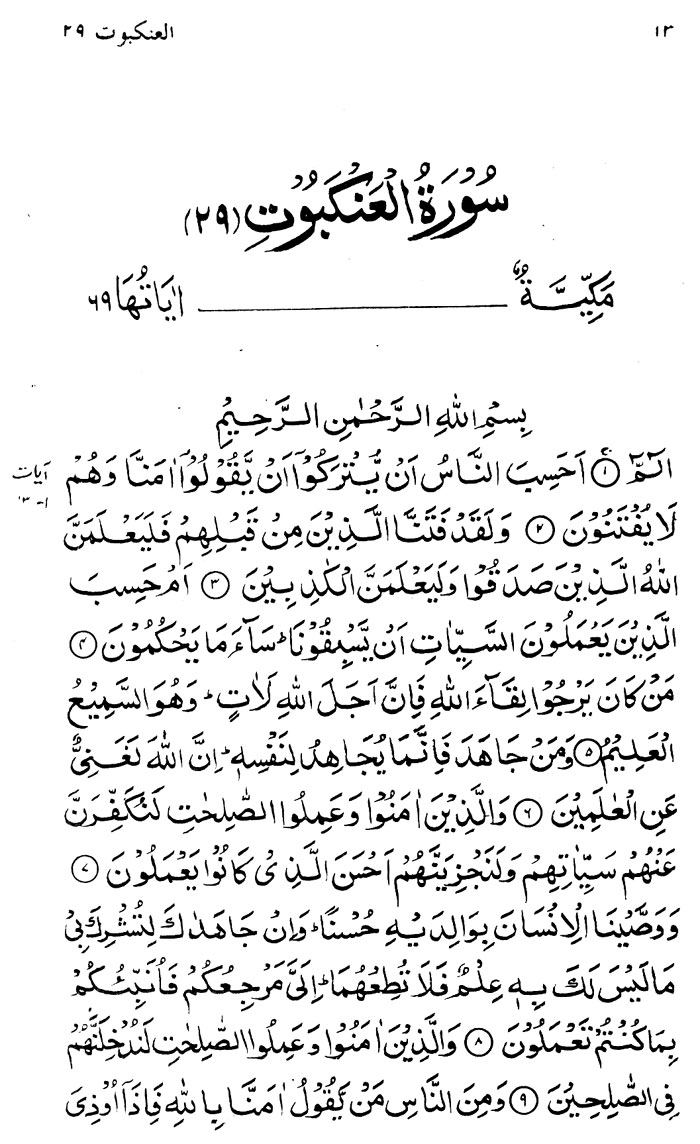 ١٣ العنكبوت ٢٩
سُوْرَةُ الْعَنْكَبُوْتِ (٢٩)
مَكِّيَّةٌ اٰيَاتُهَا ٦٩
بِسْمِ اللهِ الرَّحْمٰنِ الرَّحِيْمِ
الٓمّٓ ۚ ﴿١﴾ اَحَسِبَ النَّاسُ اَنْ يُّتْرَكُوْۤا اَنْ يَّقُوْلُوْۤا اٰمَنَّا وَهُمْ
آيات
١-٣
لَا يُفْتَنُوْنَ ﴿٢﴾ وَلَقَدْ فَتَنَّا الَّذِيْنَ مِنْ قَبْلِهِمْ فَلَيَعْلَمَنَّ
اللهُ الَّذِيْنَ صَدَقُوْا وَلَيَعْلَمَنَّ الْكٰذِبِيْنَ ﴿٣﴾ اَمْ حَسِبَ
الَّذِيْنَ يَعْمَلُوْنَ السَّيِّاٰتِ اَنْ يَّسْبِقُوْنَا ؕ سَآءَ مَا يَحْكُمُوْنَ ﴿٤﴾
مَنْ كَانَ يَرْجُوْا لِقَآءَ اللهِ فَاِنَّ اَجَلَ اللهِ لَاٰتٍ ؕ وَهُوَ السَّمِيْعُ
الْعَلِيْمُ ﴿٥﴾ وَمَنْ جَاهَدَ فَاِنَّمَا يُجَاهِدُ لِنَفْسِهٖ ؕ اِنَّ اللهَ لَغَنِيٌّ
عَنِ الْعٰلَمِيْنَ ﴿٦﴾ وَالَّذِيْنَ اٰمَنُوْا وَعَمِلُوا الصّٰلِحٰتِ لَنُكَفِّرَنَّ
عَنْهُمْ سَيِّاٰتِهِمْ وَلَنَجْزِيَنَّهُمْ اَحْسَنَ الَّذِيْ كَانُوْا يَعْمَلُوْنَ ﴿٧﴾
وَوَصَّيْنَا الْاِنْسَانَ بِوَالِدَيْهِ حُسْنًا ؕ وَاِنْ جَاهَدٰكَ لِتُشْرِكَ بِيْ
مَا لَيْسَ لَكَ بِهٖ عِلْمٌ فَلَا تُطِعْهُمَا ؕ اِلَيَّ مَرْجِعُكُمْ فَاُنَبِّئُكُمْ
بِمَا كُنْتُمْ تَعْمَلُوْنَ ﴿٨﴾ وَالَّذِيْنَ اٰمَنُوْا وَعَمِلُوا الصّٰلِحٰتِ لَنُدْخِلَنَّهُمْ
فِي الصّٰلِحِيْنَ ﴿٩﴾ وَمِنَ النَّاسِ مَنْ يَّقُوْلُ اٰمَنَّا بِاللهِ فَاِذَاۤ اُوْذِيَ